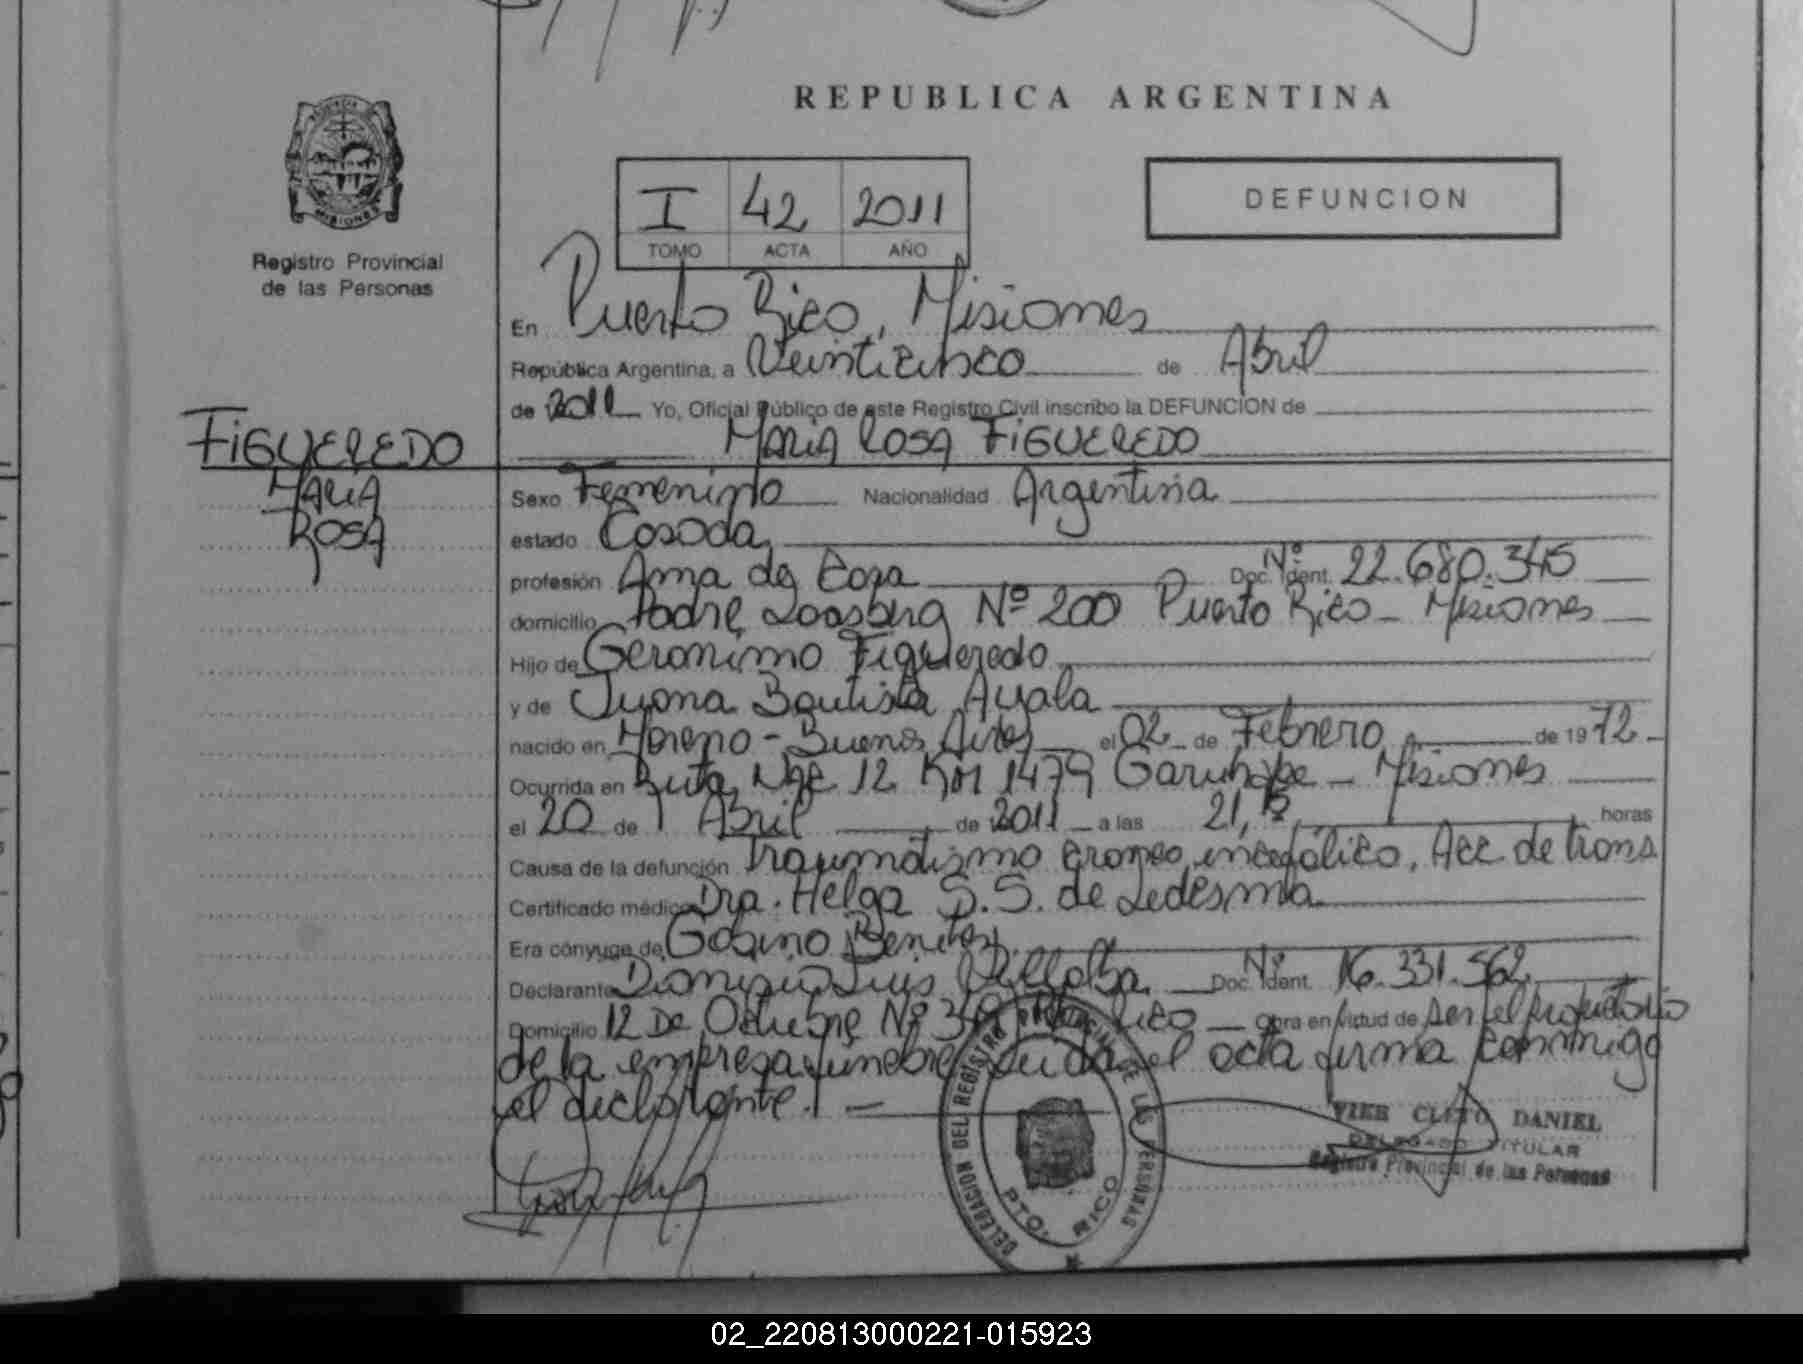 REPUBLICA ARGENTINA
MISIONES
Registro Provincial
de las Personas
I 42 2011
TOMO ACTA AÑO
DEFUNCION
En Puerto Rico, Misiones
República Argentina, a Veinticinco de Abril
de 2011 Yo, Oficial Público de este Registro Civil inscribo la DEFUNCION de
Maria Rosa FIGUEREDO
FIGUEREDO
MARIA
ROSA
Sexo Femenino Nacionalidad Argentina
estado Casada
profesión Ama de Casa Doc. Ident. Nº 22.680.345
domicilio Padre Nº 200 Puerto Rico - Misiones
Hijo de Geronimo Figueredo
y de Juana Bautista Ayala
nacido en Moreno - Buenos Aires el 02 de Febrero de 1972
Ocurrida en Ruta Nac 12 Km 1479 Garuhape - Misiones
el 20 de Abril de 2011 a las 21, horas
Causa de la defunción Traumatizmo craneo encefálico. Acc de trans
Certificado médico Dra. Helga S.S. de Ledesma
Era cónyuge de Gabino Benitez
Declarante Dionisio Luis Villalba Doc. Ident. Nº 16.331.562
Domicilio 12 De Octubre Nº Rico Obra en virtud de ser el propietario
de la empresa funebre el acta firma conmigo
el declarante.
DELEGACION DEL REGISTRO PROVINCIAL DE LAS PERSONAS
PTO. RICO
VIER CLITO DANIEL
DELEGADO TITULAR
Registro Provincial de las Personas
02_220813000221-015923